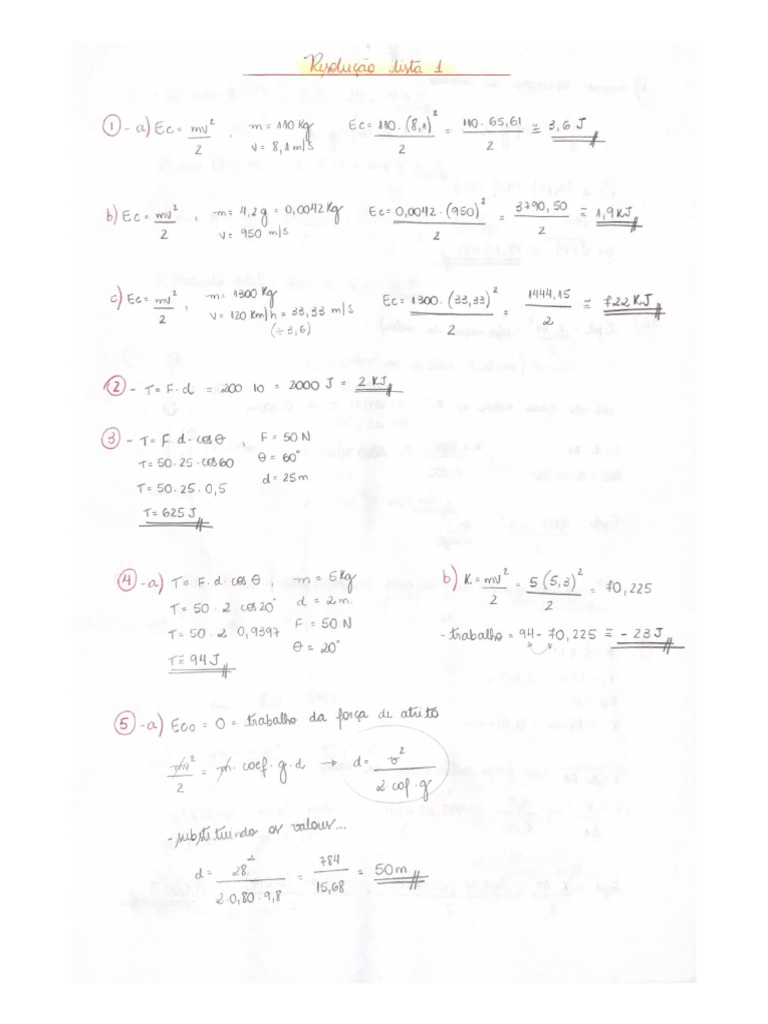 Resolução lista 1
① - a) Ec = mv²/2 , m = 110 Kg v = 8,1 m/s Ec = 110 . (8,1)²/2 = 110 . 65,61/2 ≅ 3,6 J
b) Ec = mv²/2 , m = 4,2 g = 0,0042 Kg v = 950 m/s Ec = 0,0042 . (950)²/2 = 3790,50/2 ≅ 1,9 KJ
c) Ec = mv²/2 , m = 1300 Kg v = 120 Km/h = 33,33 m/s (÷ 3,6) Ec = 1300 . (33,33)²/2 = 1444,15/2 ≅ 722 KJ
② - T = F . d = 200 10 = 2000 J = 2 KJ
③ - T = F . d . cos θ , F = 50 N
T = 50 . 25 . cos 60 θ = 60°
T = 50 . 25 . 0,5 d = 25 m
T = 625 J
④ - a) T = F . d . cos θ , m = 5 Kg
T = 50 . 2 . cos 20° d = 2 m.
T = 50 . 2 0,9397 F = 50 N
T ≅ 94 J θ = 20°
b) K = mv²/2 = 5 (5,3)²/2 = 70,225
- trabalho = 94 - 70,225 ≅ - 23 J
⑤ - a) Eco = 0 = trabalho da força de atrito
mv²/2 = m . coef . g . d → d = v²/2 . cof . g
- substituindo os valores...
d = 28²/2 . 0,80 . 9,8 = 784/15,68 = 50 m